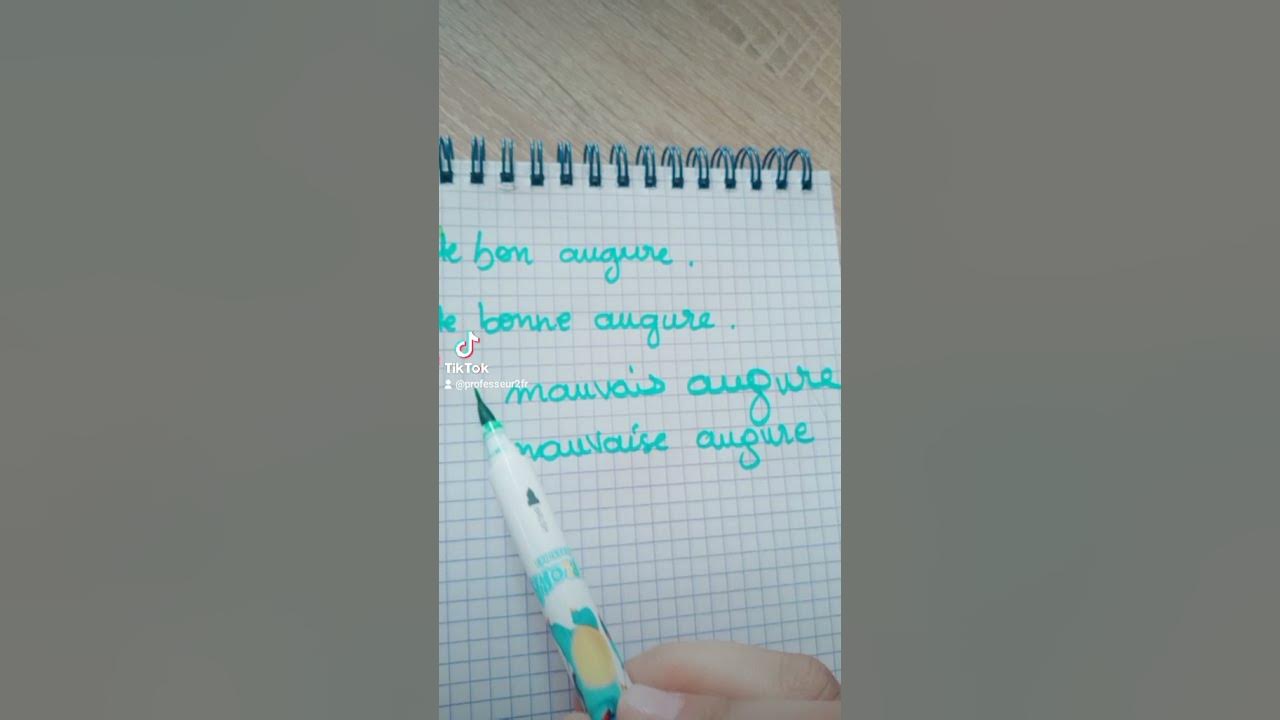 de bon augure.
de bonne augure.
TikTok
@professeur2fr
mauvais augure
mauvaise augure